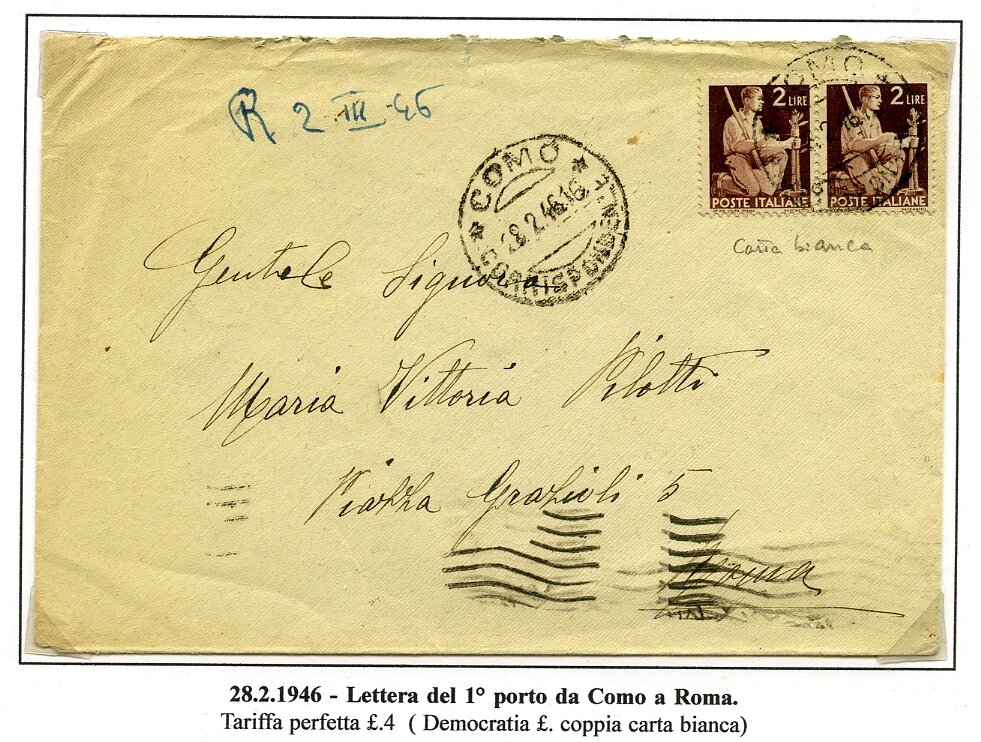 COMO
2 LIRE
2 LIRE
POSTE ITALIANE
POSTE ITALIANE
R 2 III-46
* COMO *
28.2.46.16
CORRISPONDENZE
carta bianca
Gentile Signora
Maria Vittoria Pilotti
Piazza Grazioli 5
Roma
28.2.1946 - Lettera del 1° porto da Como a Roma.
Tariffa perfetta £.4 ( Democratia £. coppia carta bianca)